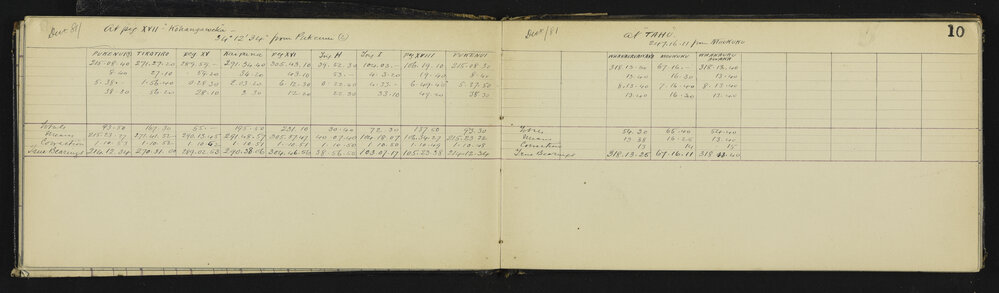 Dec 81 At peg XVII "Kohangawehi" -
34° 12' 34" from Pukenui
PUKENUI TIKATIKA peg XV peg XVI Trig H Trig I peg XVIII PUKENUI
215.08.40 271.27.20 289.59.- 291.34.40 305.43.10 39.52.30 104.03.- 106.19.10 215.08.30
8.40 27.10 59.20 34.20 43.10 53.- 4.3.20 19.40 8.40
5.38.- 1.56.40 0.28.30 2.03.20 6.12.30 0.22.40 4.33.- 6.49.40 5.37.50
38.20 56.20 28.10 3.30 12.20 22.30 33.10 49.20 38.30
Totals 93.50 167.30 55.- 195.50 231.10 30.40 72.30 137.50 93.30
Means 215.23.27 271.41.52 290.13.45 291.48.57 305.57.47 40.07.40 104.18.07 106.34.27 215.23.22
Correction 1.10.53 1.10.52 1.10.52 1.10.51 1.10.51 1.10.51 1.10.50 1.10.49 1.10.48
True Bearings 214.12.34 270.31.00 289.02.53 290.38.06 304.46.56 38.56.50 103.07.17 105.23.38 214.12.34
Dec/81 At TAHU. 10
247.16.11 from Maukuku
MAUKUKU
318.13.20 67.16.- 318.13.40
13.40 16.30 13.40
8.13.40 7.16.40 8.13.20
13.40 16.30 13.40
Totals 54.20 65.40 54.40
Means
Corrections 13 14 15
True Bearings 318.13.25 67.16.11 318.13.40